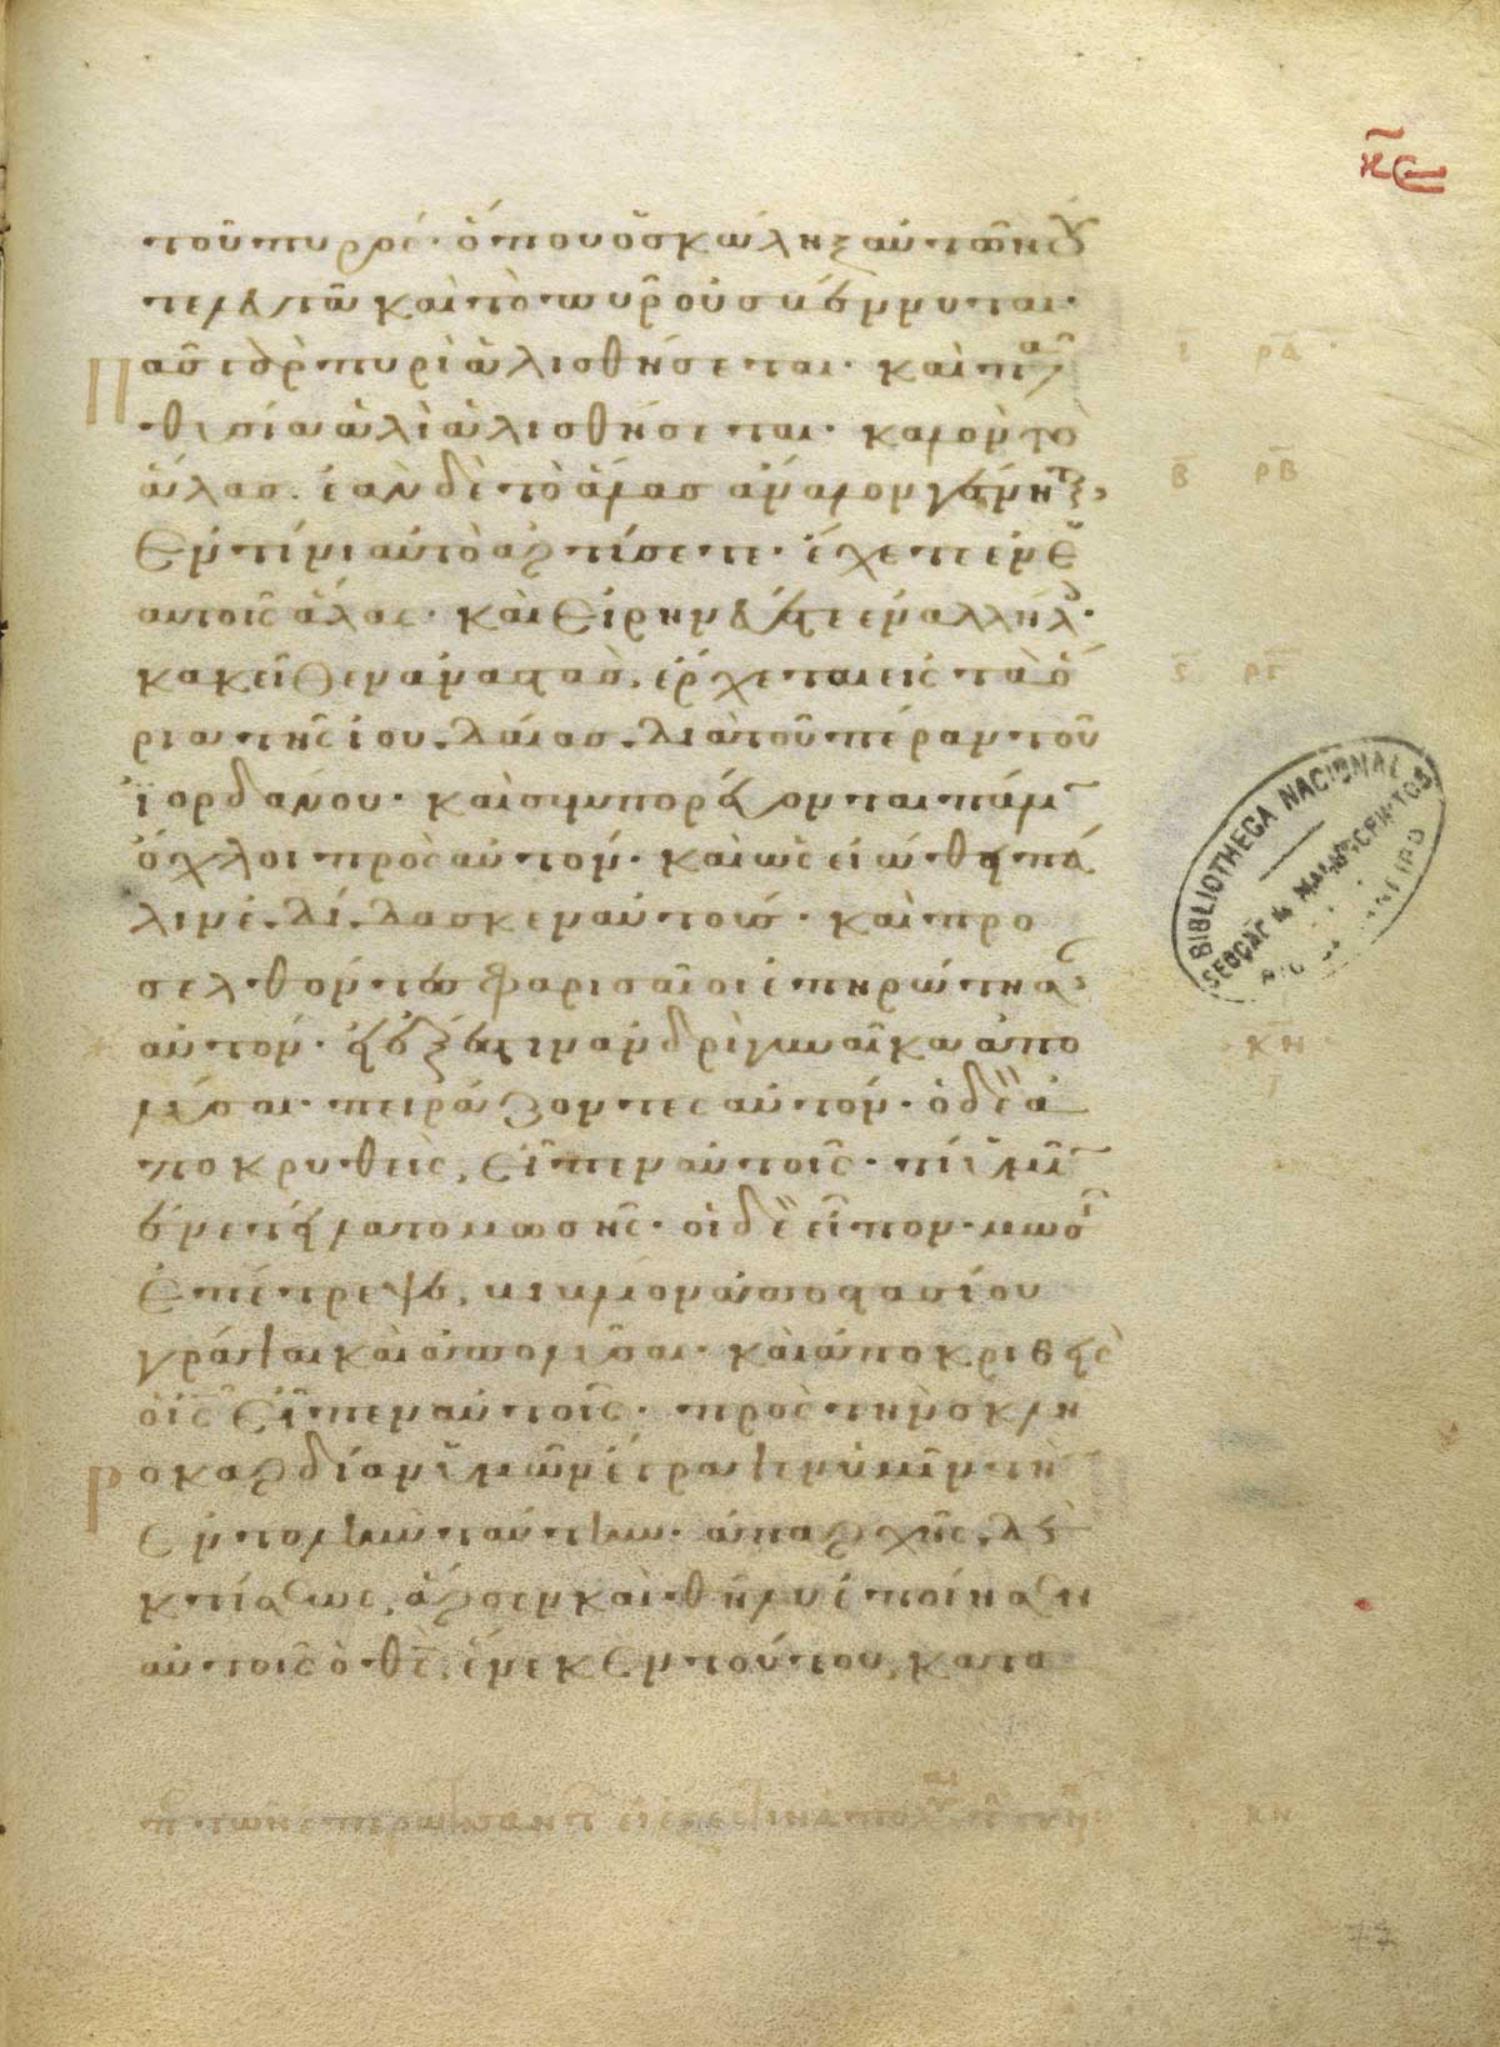 κϛ
τοῦ πυρός· ὅπου ὁ σκώληξ αὐτῶν οὐ
τελευτᾶ καὶ τὸ πῦρ οὐ σβέννυται·
Πᾶς γὰρ πυρὶ ἁλισθήσεται· καὶ πᾶσα
θυσία ἁλὶ ἁλισθήσεται· καλὸν τὸ
ἅλας. ἐὰν δὲ τὸ ἅλας ἄναλον γένηται,
ἐν τίνι αὐτὸ ἀρτύσετε· ἔχετε ἐν ἑ
αυτοῖς ἅλας· καὶ εἰρηνεύετε ἐν ἀλλήλοις·
κακεῖθεν ἀναστὰς, ἔρχεται εἰς τὰ ὅ
ρια τῆς ἰουδαίας διὰ τοῦ πέραν τοῦ
ϊορδάνου· καὶ συμπορεύονται πάλιν
ὄχλοι πρὸς αὐτόν· καὶ ὡς εἰώθει πά
λιν ἐδίδασκεν αὐτούς· καὶ προ
σελθόντες φαρισαῖοι ἐπηρώτησαν
αὐτόν· εἰ ἔξεστιν ἀνδρὶ γυναῖκα ἀπο
λῦσαι· πειράζοντες αὐτόν· ὁ δὲ ἀ
ποκριθεὶς, εἶπεν αὐτοῖς· τί ὑμῖν
ἐνετείλατο μωσῆς· οἱ δὲ εἶπον· μωσῆς
ἐπέτρεψε, βιβλίον ἀποστασίου
γράψαι καὶ ἀπολῦσαι· καὶ ἀποκριθεὶς
ὁ ἰς εἶπεν αὐτοῖς· πρὸς τὴν σκλη
ροκαρδίαν ὑμῶν ἔγραψεν ὑμῖν τὴν
ἐντολὴν ταύτην· ἀπαρχῆς δὲ
κτίσεως, ἄρσεν καὶ θῆλυ ἐποίησεν
αὐτοὺς ὁ θς, ἕνεκεν τούτου, κατα
ρα
ρβ
ργ
κη
BIBLIOTHECA NACIONAL
κη
77